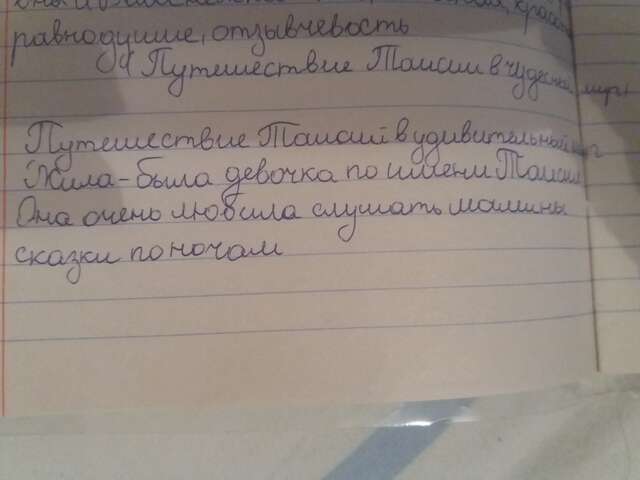 равнодушие, отзывчевость
(Путешествие Таисии в чудесный мир)
Путешествие Таисии в удивительный мир
Жила-была девочка по имени Таисия
Она очень любила слушать мамины
сказки по ночам